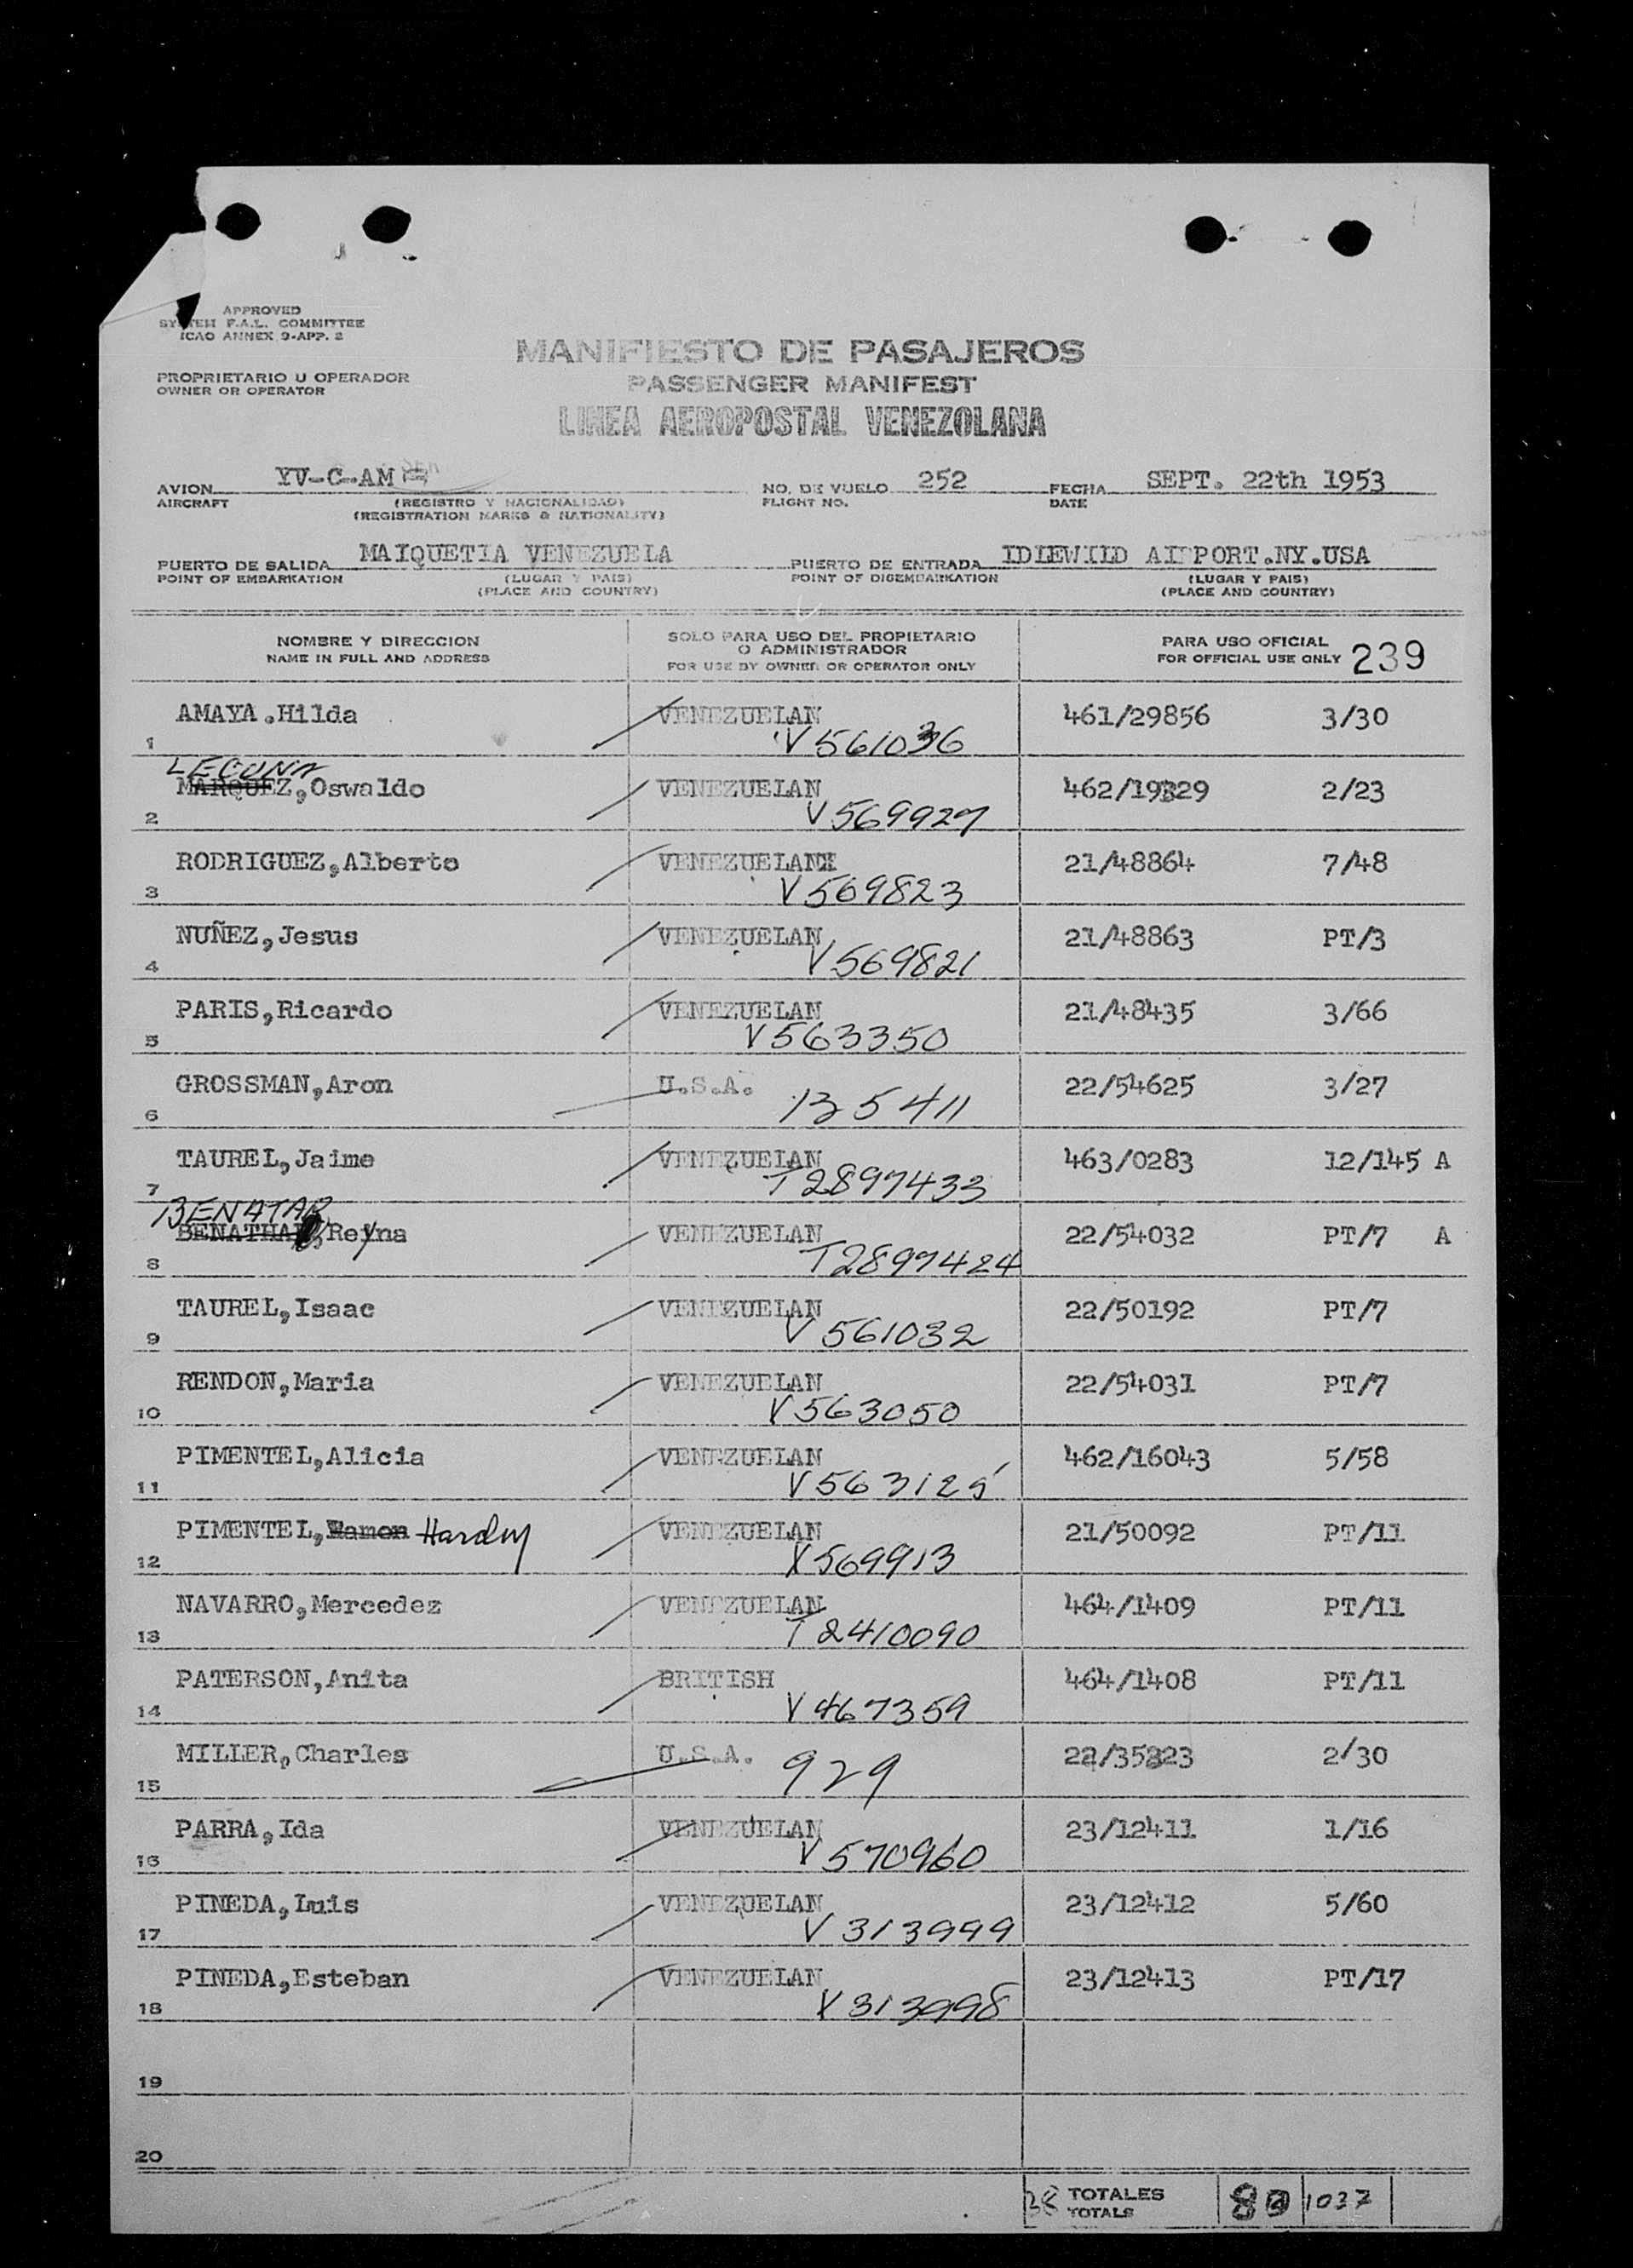 APPROVED
SYSTEM F.A.L. COMMITTEE
ICAO ANNEX 9-APP. 2
MANIFIESTO DE PASAJEROS
PROPRIETARIO U OPERADOR
OWNER OR OPERATOR
PASSENGER MANIFEST
LINEA AEROPOSTAL VENEZOLANA
AVION YV-C-AM NO. DE VUELO 252 FECHA SEPT. 22th 1953
AIRCRAFT (REGISTRO Y NACIONALIDAD) FLIGHT NO. DATE
(REGISTRATION MARKS & NATIONALITY)
PUERTO DE SALIDA MAIQUETIA VENEZUELA PUERTO DE ENTRADA IDLEWILD AIRPORT.NY.USA
POINT OF EMBARKATION (LUGAR Y PAIS) POINT OF DISEMBARKATION (LUGAR Y PAIS)
(PLACE AND COUNTRY) (PLACE AND COUNTRY)
NOMBRE Y DIRECCION SOLO PARA USO DEL PROPIETARIO O ADMINISTRADOR PARA USO OFICIAL
NAME IN FULL AND ADDRESS FOR USE BY OWNER OR OPERATOR ONLY FOR OFFICIAL USE ONLY 239
AMAYA.Hilda VENEZUELAN 461/29856 3/30
1 V561036
LECUNA
MARQUEZ,Oswaldo VENEZUELAN 462/19329 2/23
2 V569927
RODRIGUEZ,Alberto VENEZUELAN 21/48864 7/48
3 V569823
NUÑEZ,Jesus VENEZUELAN 21/48863 PT/3
4 V569821
PARIS,Ricardo VENEZUELAN 21/48435 3/66
5 V563350
GROSSMAN,Aron U.S.A. 22/54625 3/27
6 135411
TAUREL,Jaime VENEZUELAN 463/0283 12/145 A
7 T2897433
BENATAR
BENATHAR,Reyna VENEZUELAN 22/54032 PT/7 A
8 T2897424
TAUREL,Isaac VENEZUELAN 22/50192 PT/7
9 V561032
RENDON,Maria VENEZUELAN 22/54031 PT/7
10 V563050
PIMENTEL,Alicia VENEZUELAN 462/16043 5/58
11 V563125
PIMENTEL,Ramon Hardy VENEZUELAN 21/50092 PT/11
12 V569913
NAVARRO,Mercedez VENEZUELAN 464/1409 PT/11
13 T2410090
PATERSON,Anita BRITISH 464/1408 PT/11
14 V467359
MILLER,Charles U.S.A. 22/35323 2/30
15 929
PARRA,Ida VENEZUELAN 23/12411 1/16
16 V570960
PINEDA,Luis VENEZUELAN 23/12412 5/60
17 V313999
PINEDA,Esteban VENEZUELAN 23/12413 PT/17
18 V313998
19
20
38 TOTALES 1037
TOTALS